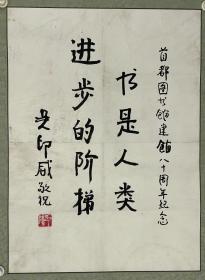 首都图书馆建馆八十周年纪念
书是人类
进步的阶梯
吴印咸敬祝